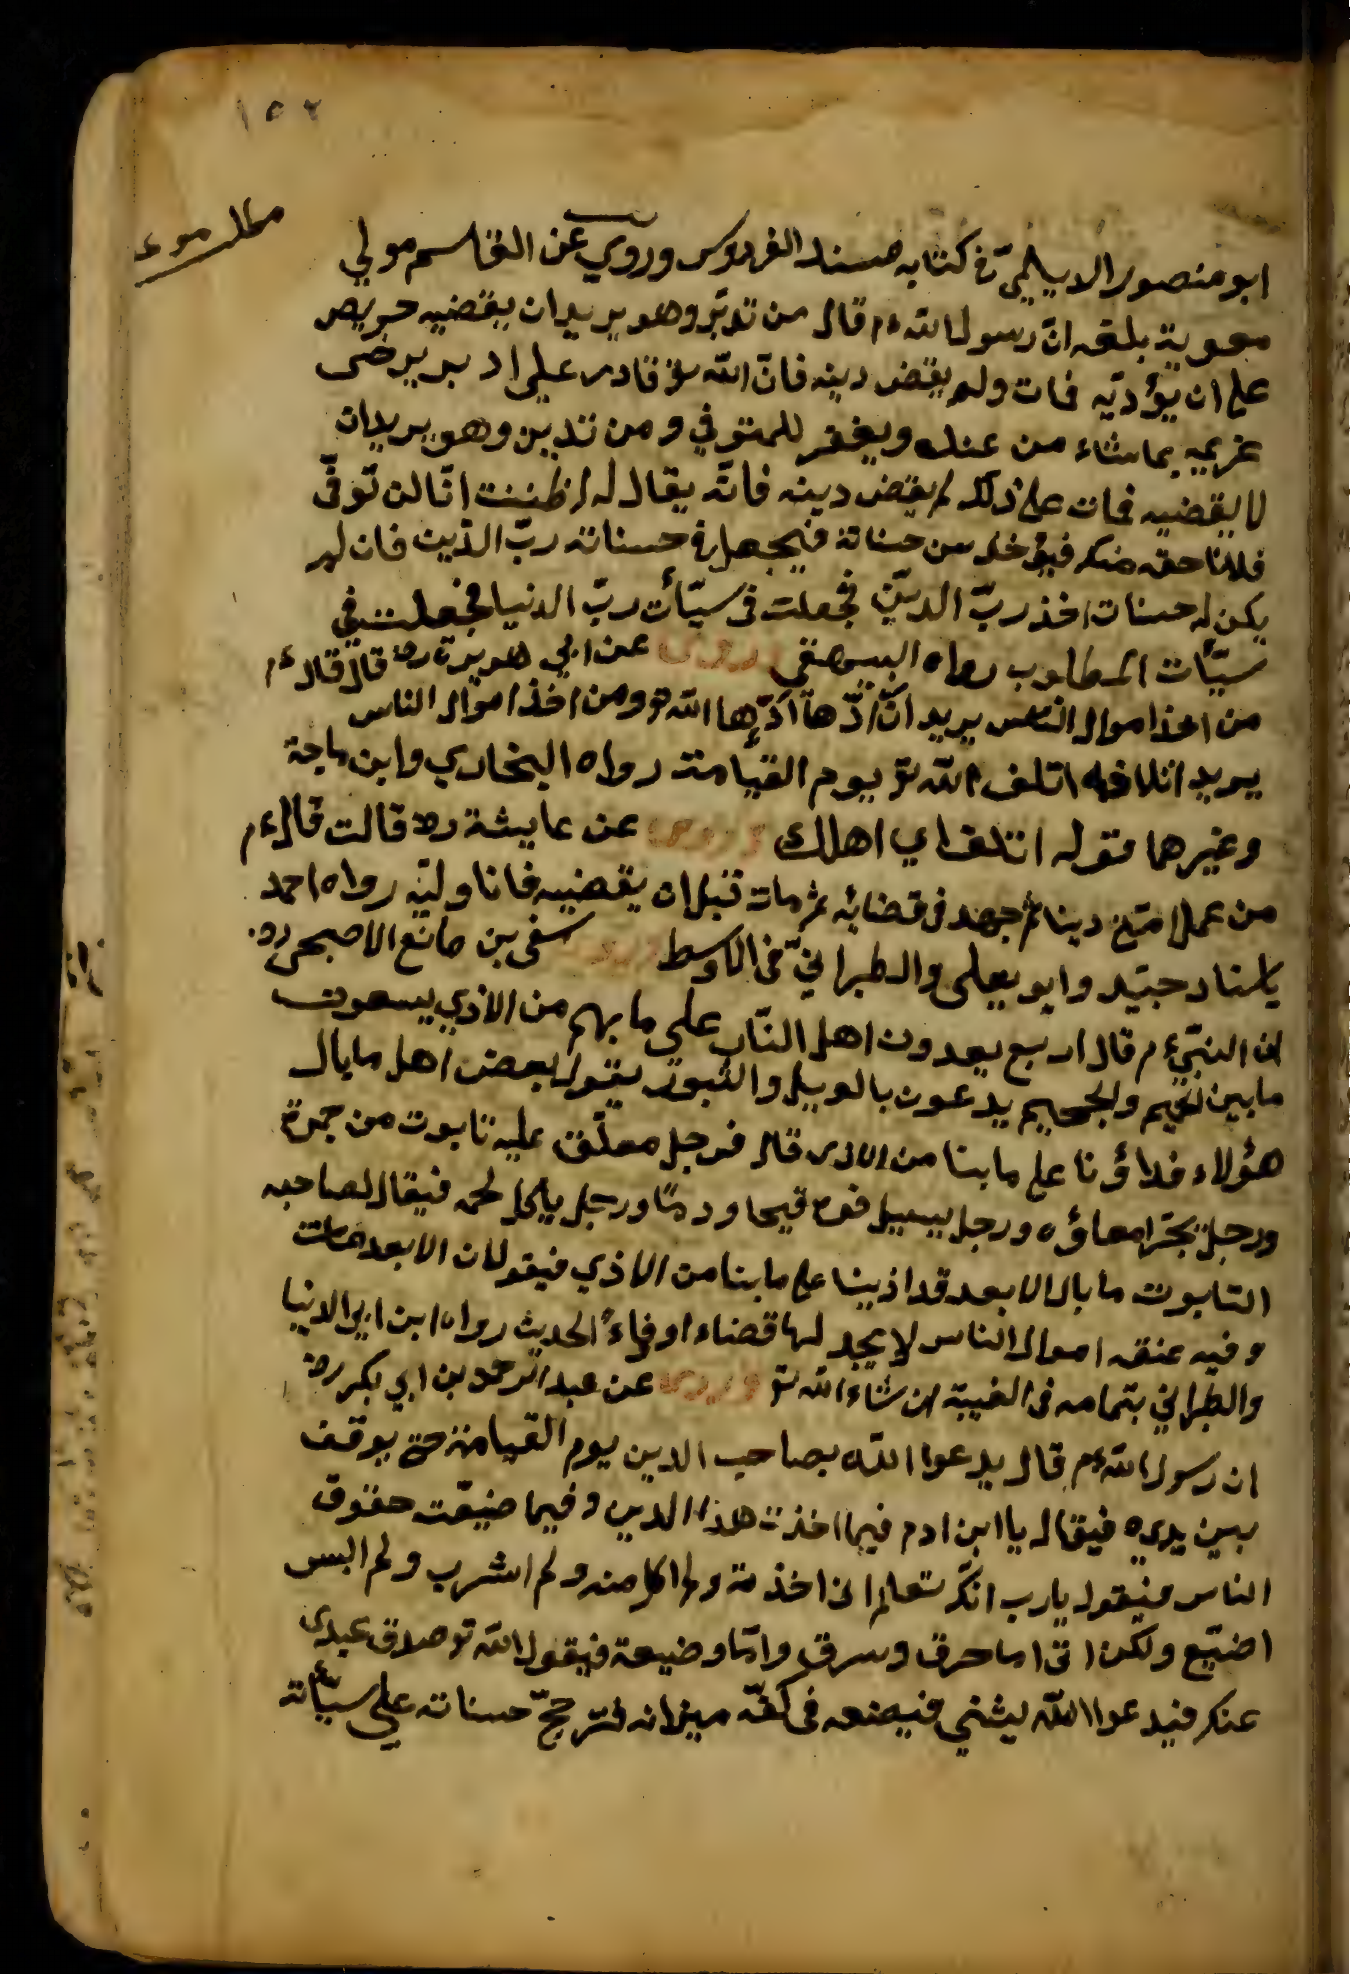 ١٥٢
ابو منصور الديلمي في كتابه مسند الفردوس وروي عن القاسم مولي
معوية بلغه ان رسول الله ءم قال من تدين وهو يريد ان يقضيه حريص
علي ان يؤديه فمات ولم يقض دينه فان الله تع قادر علي ان يرضى
غريمه بما شاء من عنده ويغفر للمتوفي ومن تدين وهو يريد ان
لا يقضيه فمات علي ذلك لم يقض دينه فانه يقال له اظننت انا لن توفي
فلانا حقه منك فيؤخذ من حسناته فيجعل في حسناته رب الدين فان لم
يكن له حسنات اخذ رب الدين فجعلت في سيأت رب الدنيا فجعلت في
سيأت المطلوب رواه البيهقي وروى عن ابي هريرة رض قال قال ءم
من اخذ اموال الناس يريد ادّاها ادّها الله تع ومن اخذ اموال الناس
يريد اتلافها اتلف الله تع يوم القيامت رواه البخاري وابن ماجة
وغيرهما قوله اتلف اي اهلك وروى عن عايشة رض قالت قال ءم
من حمل امتي دينا ثم جهد في قضائه ثم مات قبل ان يقضيه فانا وليه رواه احمد
باسناد جيد وابو يعلى والطبراني في الاوسط وروى شفي بن مانع الاصبحي رض
ان النبي ءم قال اربع يعدون اهل النار علي ما بهم من الاذي يسعون
ما بين الحميم والجحيم يدعون بالويل والثبور يقول بعض اهل ما بال
هؤلاء قد اذونا علي ما بنا من الاذى قال فرجل معلق عليه تابوت من جمرة
ورجل يجر امعاؤه ورجل يسيل فوه قيحا ودما ورجل ياكل لحمه فيقال لصاحبه
التابوت ما بال الابعد قد اذينا علي ما بنا من الاذي فيقولان الابعد مات
وفيه عنقه اموال الناس لا يجد لها قضاء او وفاء الحديث رواه ابن ابي الدنيا
والطبراني بتمامه في الغيبة ان شاء الله تع وروى عن عبد الرحمن بن ابي بكر رض
ان رسول الله ءم قال يدعوا الله بصاحب الدين يوم القيامة حتى يوقف
بين يديه فيقال يا ابن ادم فيما اخذت هذا الدين وفيما ضيعت حقوق
الناس فيقول يارب انك تعلم اني اخذته ولم اكل منه ولم اشرب ولم البس
اضيع ولكن اتى اما حرق وسرق واما وضيعة فيقول الله تع صدق عبدى
عنك فيدعوا الله بشئي فيضعه في كفة ميزانه فترجح حسناته علي سيأته